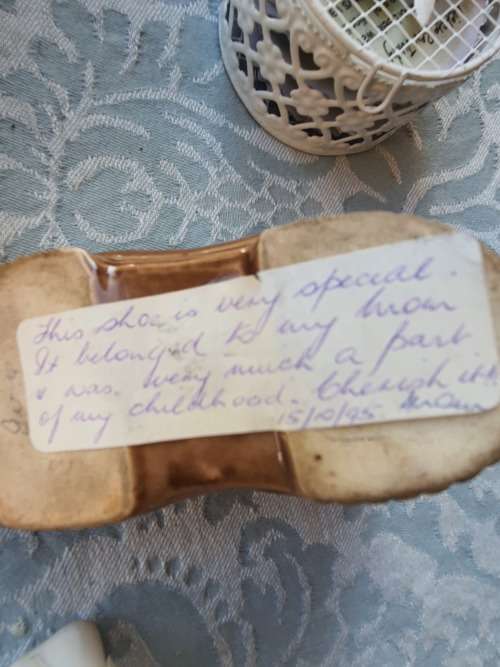 This shoe is very special.
It belonged to my mom
& was very much a part
of my childhood. Cherish it
15/10/95